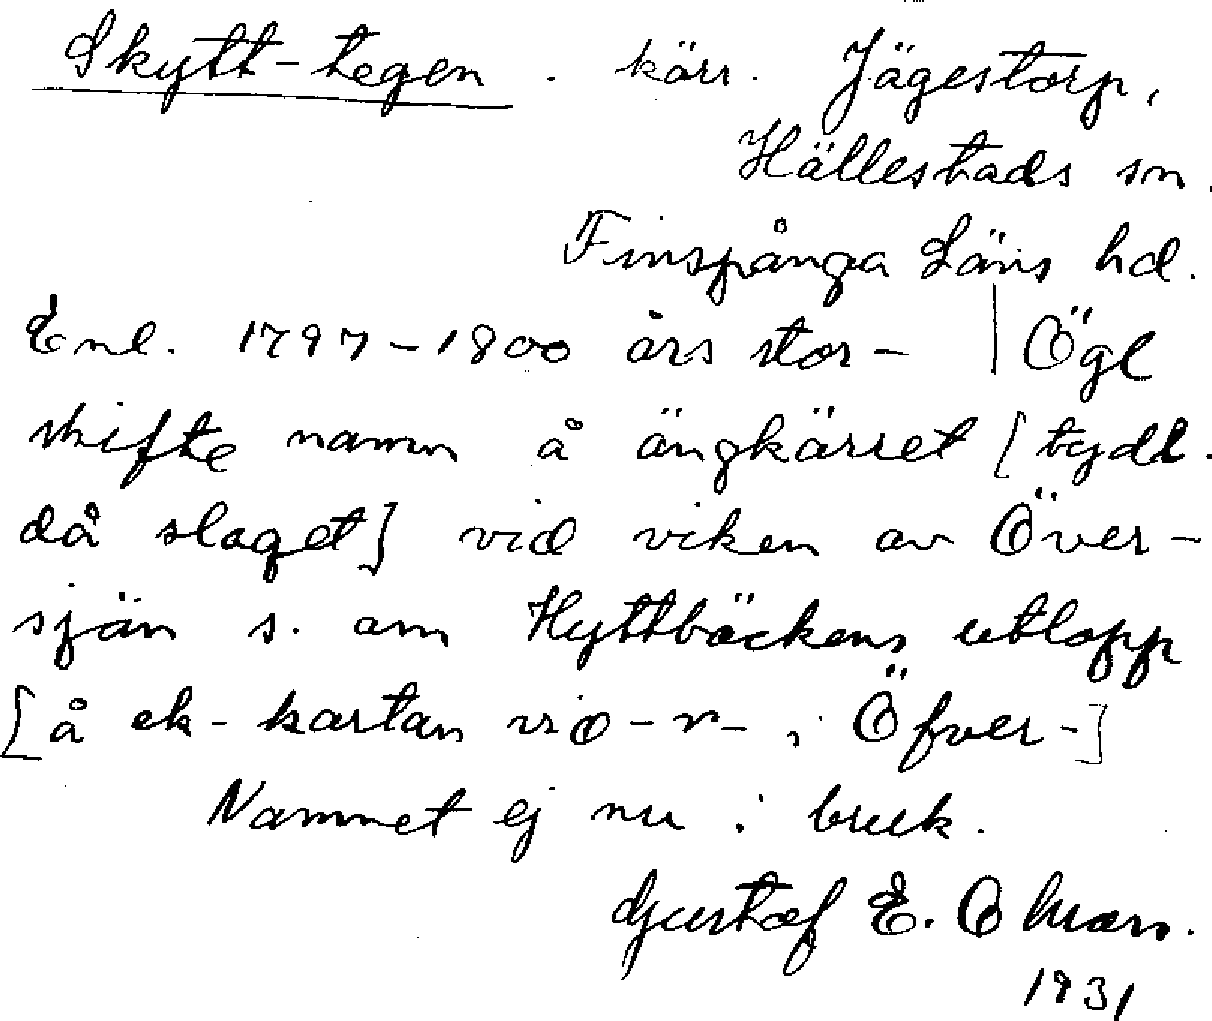 Skytt-tegen . kärr. Jägestorp,
Hällestads sn.
Finspånga Läns hd.
Enl. 1797-1800 års stor- | Ögl
skifte namn å ängkärret [tydl.
då slaget] vid viken av Över-
sjön s. om Hyttbäckens utlopp
[å ek-kartan vid -n- i Öfver-]
Namnet ej nu i bruk.
Gustaf E. Ohman.
1931